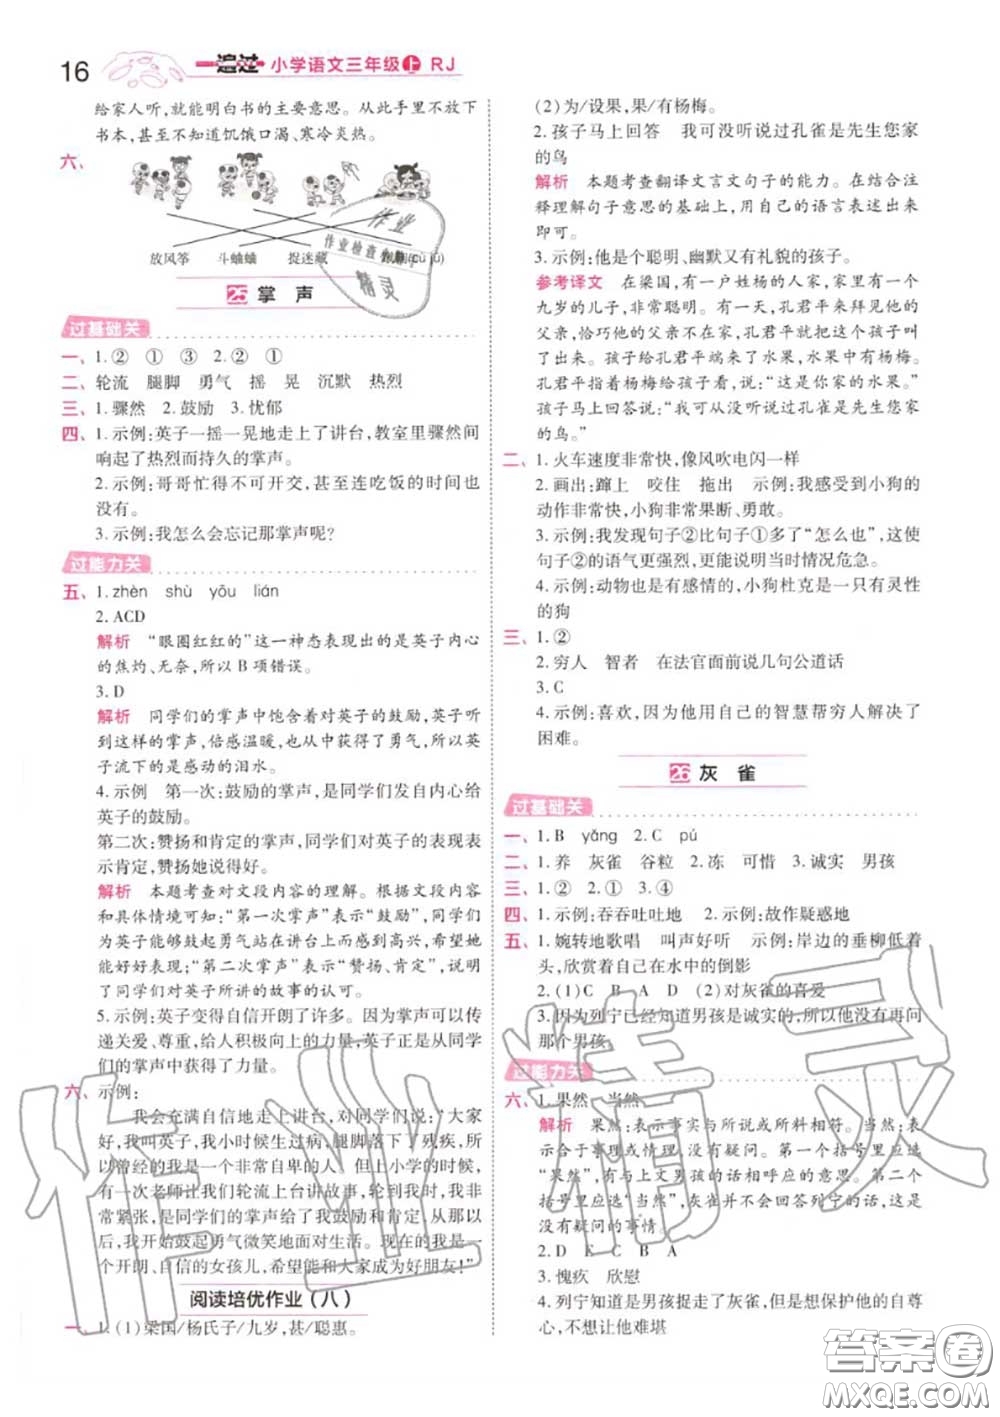 16 一遍过 小学语文三年级上 RJ
给家人听,就能明白书的主要意思。从此手里不放下
书本,甚至不知道饥饿口渴、寒冷炎热。
六、
放风筝 斗蛐蛐 捉迷藏
25 掌 声
过基础关
一、1. ② ① ③ 2. ② ①
二、轮流 腿脚 勇气 摇 晃 沉默 热烈
三、1. 骤然 2. 鼓励 3. 忧郁
四、1. 示例:英子一摇一晃地走上了讲台,教室里骤然间
响起了热烈而持久的掌声。
2. 示例:哥哥忙得不可开交,甚至连吃饭的时间也
没有。
3. 示例:我怎么会忘记那掌声呢?
过能力关
五、1. zhèn shù yōu lián
2. ACD
解析 “眼圈红红的”这一神态表现出的是英子内心
的焦灼、无奈,所以 B 项错误。
3. D
解析 同学们的掌声中饱含着对英子的鼓励,英子听
到这样的掌声,倍感温暖,也从中获得了勇气,所以英
子流下的是感动的泪水。
4. 示例 第一次:鼓励的掌声,是同学们发自内心给
英子的鼓励。
第二次:赞扬和肯定的掌声,同学们对英子的表现表
示肯定,赞扬她说得好。
解析 本题考查对文段内容的理解。根据文段内容
和具体情境可知:“第一次掌声”表示“鼓励”,同学们
为英子能够鼓起勇气站在讲台上而感到高兴,希望她
能好好表现;“第二次掌声”表示“赞扬、肯定”,说明
了同学们对英子所讲的故事的认可。
5. 示例:英子变得自信开朗了许多。因为掌声可以传
递关爱、尊重,给人积极向上的力量,英子正是从同学
们的掌声中获得了力量。
六、示例:
我会充满自信地走上讲台,对同学们说:“大家
好,我叫英子,我小时候生过病,腿脚落下了残疾,所
以曾经的我是一个非常自卑的人。但上小学的时候,
有一次老师让我们轮流上台讲故事,轮到我时,我非
常紧张,是同学们的掌声给了我鼓励和肯定,从那以
后,我开始鼓起勇气微笑地面对生活。现在的我是一
个开朗、自信的女孩儿,希望能和大家成为好朋友!”
阅读培优作业(八)
一、1. (1)梁国/杨氏子/九岁,甚/聪惠。
(2)为/设果,果/有杨梅。
2. 孩子马上回答 我可没听说过孔雀是先生您家
的鸟
解析 本题考查翻译文言文句子的能力。在结合注
释理解句子意思的基础上,用自己的语言表述出来
即可。
3. 示例:他是个聪明、幽默又有礼貌的孩子。
参考译文 在梁国,有一户姓杨的人家,家里有一个
九岁的儿子,非常聪明。有一天,孔君平来拜见他的
父亲,恰巧他的父亲不在家,孔君平就把这个孩子叫
了出来。孩子给孔君平端来了水果,水果中有杨梅。
孔君平指着杨梅给孩子看,说:“这是你家的水果。”
孩子马上回答说:“我可从没听说过孔雀是先生您家
的鸟。”
二、1. 火车速度非常快,像风吹电闪一样
2. 画出:蹿上 咬住 拖出 示例:我感受到小狗的
动作非常快,小狗非常果断、勇敢。
3. 示例:我发现句子②比句子①多了“怎么也”,这使
句子②的语气更强烈,更能说明当时情况危急。
4. 示例:动物也是有感情的,小狗杜克是一只有灵性
的狗
三、1. ②
2. 穷人 智者 在法官面前说几句公道话
3. C
4. 示例:喜欢,因为他用自己的智慧帮穷人解决了
困难。
26 灰 雀
过基础关
一、1. B yǎng 2. C pú
二、1. 养 灰雀 谷粒 2. 冻 可惜 3. 诚实 男孩
三、1. ② 2. ① 3. ④
四、1. 示例:吞吞吐吐地 2. 示例:故作疑惑地
五、1. 婉转地歌唱 叫声好听 示例:岸边的垂柳低着
头,欣赏着自己在水中的倒影
2. (1)C B A D (2)对灰雀的喜爱
3. 因为列宁已经知道男孩是诚实的,所以他没有再问
那个男孩
过能力关
六、1. 果然 当然
解析 果然:表示事实与所说或所料相符。当然:表
示合于事理或情理,没有疑问。第一个括号里应选
“果然”,有与上文男孩的话相呼应的意思。第二个
括号里应选“当然”,灰雀并不会回答列宁的话,这是
没有疑问的事情。
3. 愧疚 欣慰
4. 列宁知道是男孩捉走了灰雀,但是想保护他的自尊
心,不想让他难堪
作业检查
精灵
作业精灵
答案圈
MXQE.COM